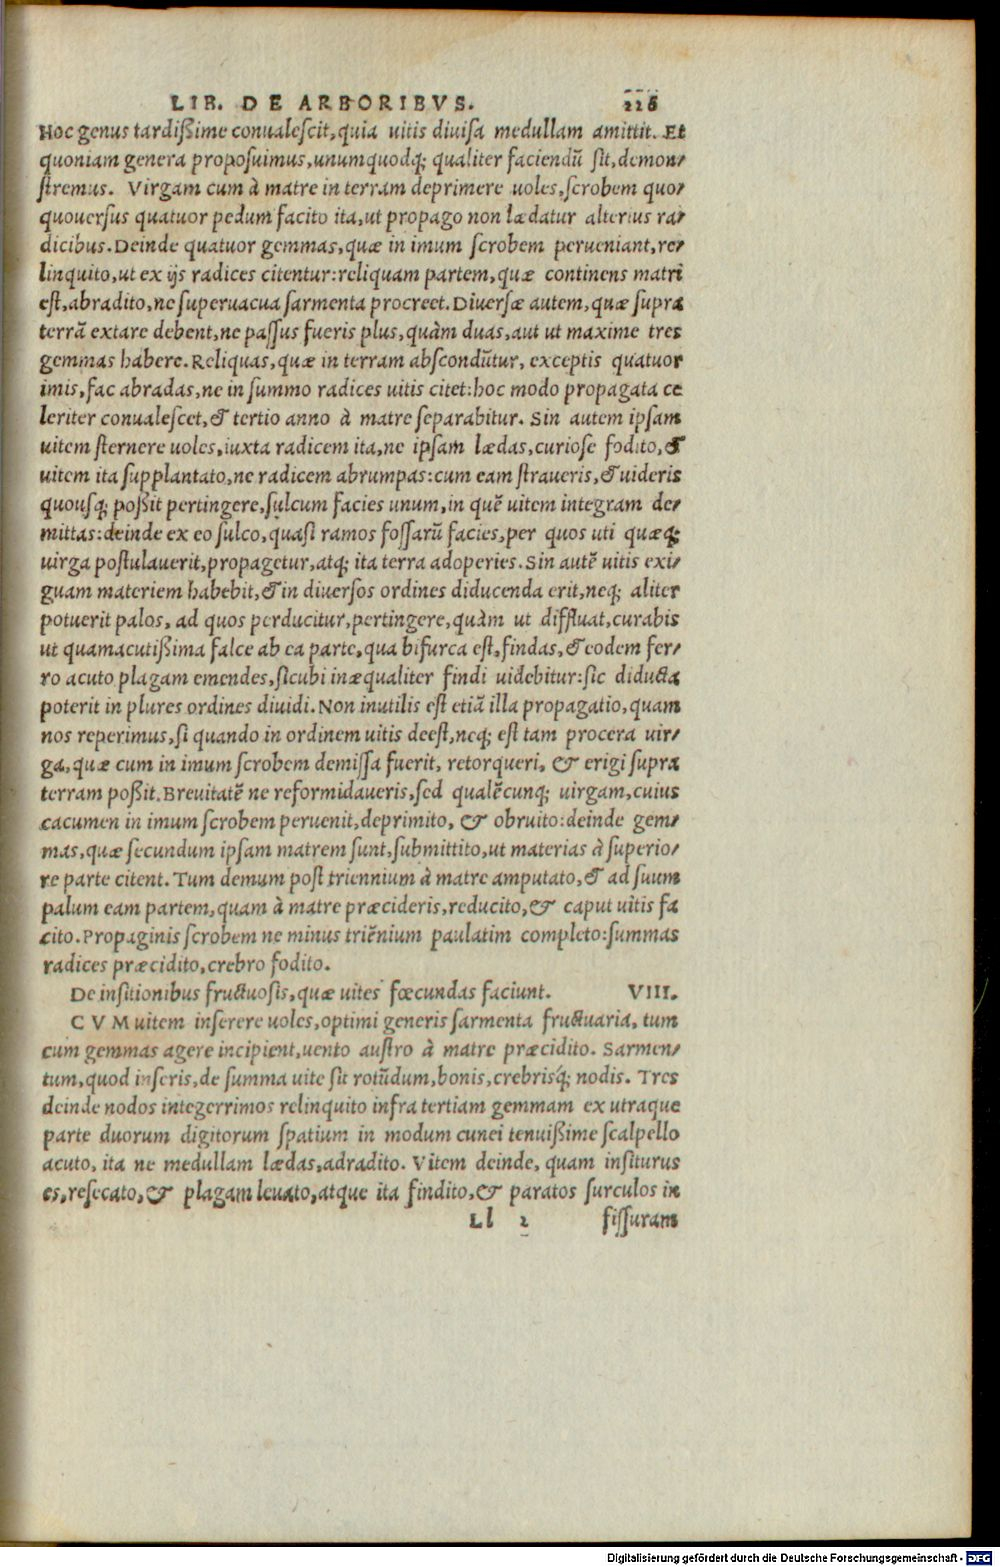 LIB. DE ARBORIBVS. 226
Hoc genus tardißime conualeſcit, quia uitis diuiſa medullam amittit. Et
quoniam genera propoſuimus, unumquodq; qualiter faciendũ ſit, demon⸗
ſtremus. Virgam cum à matre in terram deprimere uoles, ſcrobem quo⸗
quouerſus quatuor pedum facito ita, ut propago non lædatur alterius ra⸗
dicibus. Deinde quatuor gemmas, quæ in imum ſcrobem perueniant, re⸗
linquito, ut ex ijs radices citentur: reliquam partem, quæ continens matri
eſt, abradito, ne ſuperuacua ſarmenta procreet. Diuerſæ autem, quæ ſupra
terrã extare debent, ne paſſus fueris plus, quàm duas, aut ut maxime tres
gemmas habere. Reliquas, quæ in terram abſcondũtur, exceptis quatuor
imis, fac abradas, ne in ſummo radices uitis citet: hoc modo propagata ce
leriter conualeſcet, & tertio anno à matre ſeparabitur. Sin autem ipſam
uitem ſternere uoles, iuxta radicem ita, ne ipſam lædas, curioſe fodito, &
uitem ita ſupplantato, ne radicem abrumpas: cum eam ſtraueris, & uideris
quouſq; poßit pertingere, ſulcum facies unum, in quẽ uitem integram de⸗
mittas: deinde ex eo ſulco, quaſi ramos foſſarũ facies, per quos uti quæq;
uirga poſtulauerit, propagetur, atq; ita terra adoperies. Sin autẽ uitis exi⸗
guam materiem habebit, & in diuerſos ordines diducenda erit, neq; aliter
potuerit palos, ad quos perducitur, pertingere, quàm ut diffluat, curabis
ut quamacutißima falce ab ea parte, qua bifurca eſt, findas, & eodem fer⸗
ro acuto plagam emendes, ſicubi inæqualiter findi uidebitur: ſic diducta
poterit in plures ordines diuidi. Non inutilis eſt etiã illa propagatio, quam
nos reperimus, ſi quando in ordinem uitis deeſt, neq; eſt tam procera uir⸗
ga, quæ cum in imum ſcrobem demiſſa fuerit, retorqueri, & erigi ſupra
terram poßit. Breuitatẽ ne reformidaueris, ſed qualẽcunq; uirgam, cuius
cacumen in imum ſcrobem peruenit, deprimito, & obruito: deinde gem⸗
mas, quæ ſecundum ipſam matrem ſunt, ſubmittito, ut materias à ſuperio⸗
re parte citent. Tum demum poſt triennium à matre amputato, & ad ſuum
palum eam partem, quam à matre præcideris, reducito, & caput uitis fa
cito. Propaginis ſcrobem ne minus triẽnium paulatim completo: ſummas
radices præcidito, crebro fodito.
De inſitionibus fructuoſis, quæ uites fœcundas faciunt. VIII.
CVM uitem inſerere uoles, optimi generis ſarmenta fructuaria, tum
cum gemmas agere incipient, uento auſtro à matre præcidito. Sarmen⸗
tum, quod inſeris, de ſumma uite ſit rotũdum, bonis, crebrisq́; nodis. Tres
deinde nodos integerrimos relinquito infra tertiam gemmam ex utraque
parte duorum digitorum ſpatium in modum cunei tenuißime ſcalpello
acuto, ita ne medullam lædas, adradito. Vitem deinde, quam inſiturus
es, reſecato, & plagam leuato, atque ita findito, & paratos ſurculos in
Ll 2 fiſſuram
Digitalisierung gefördert durch die Deutsche Forschungsgemeinschaft - DFG